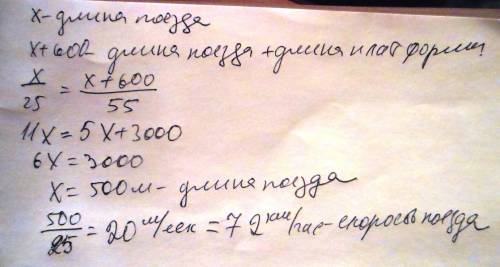 x - длина поезда
x+600 - длина поезда + длина платформы
x/25 = x+600/55
11x = 5x+3000
6x = 3000
x = 500м - длина поезда
500/25 = 20 м/сек = 72 км/час - скорость поезда